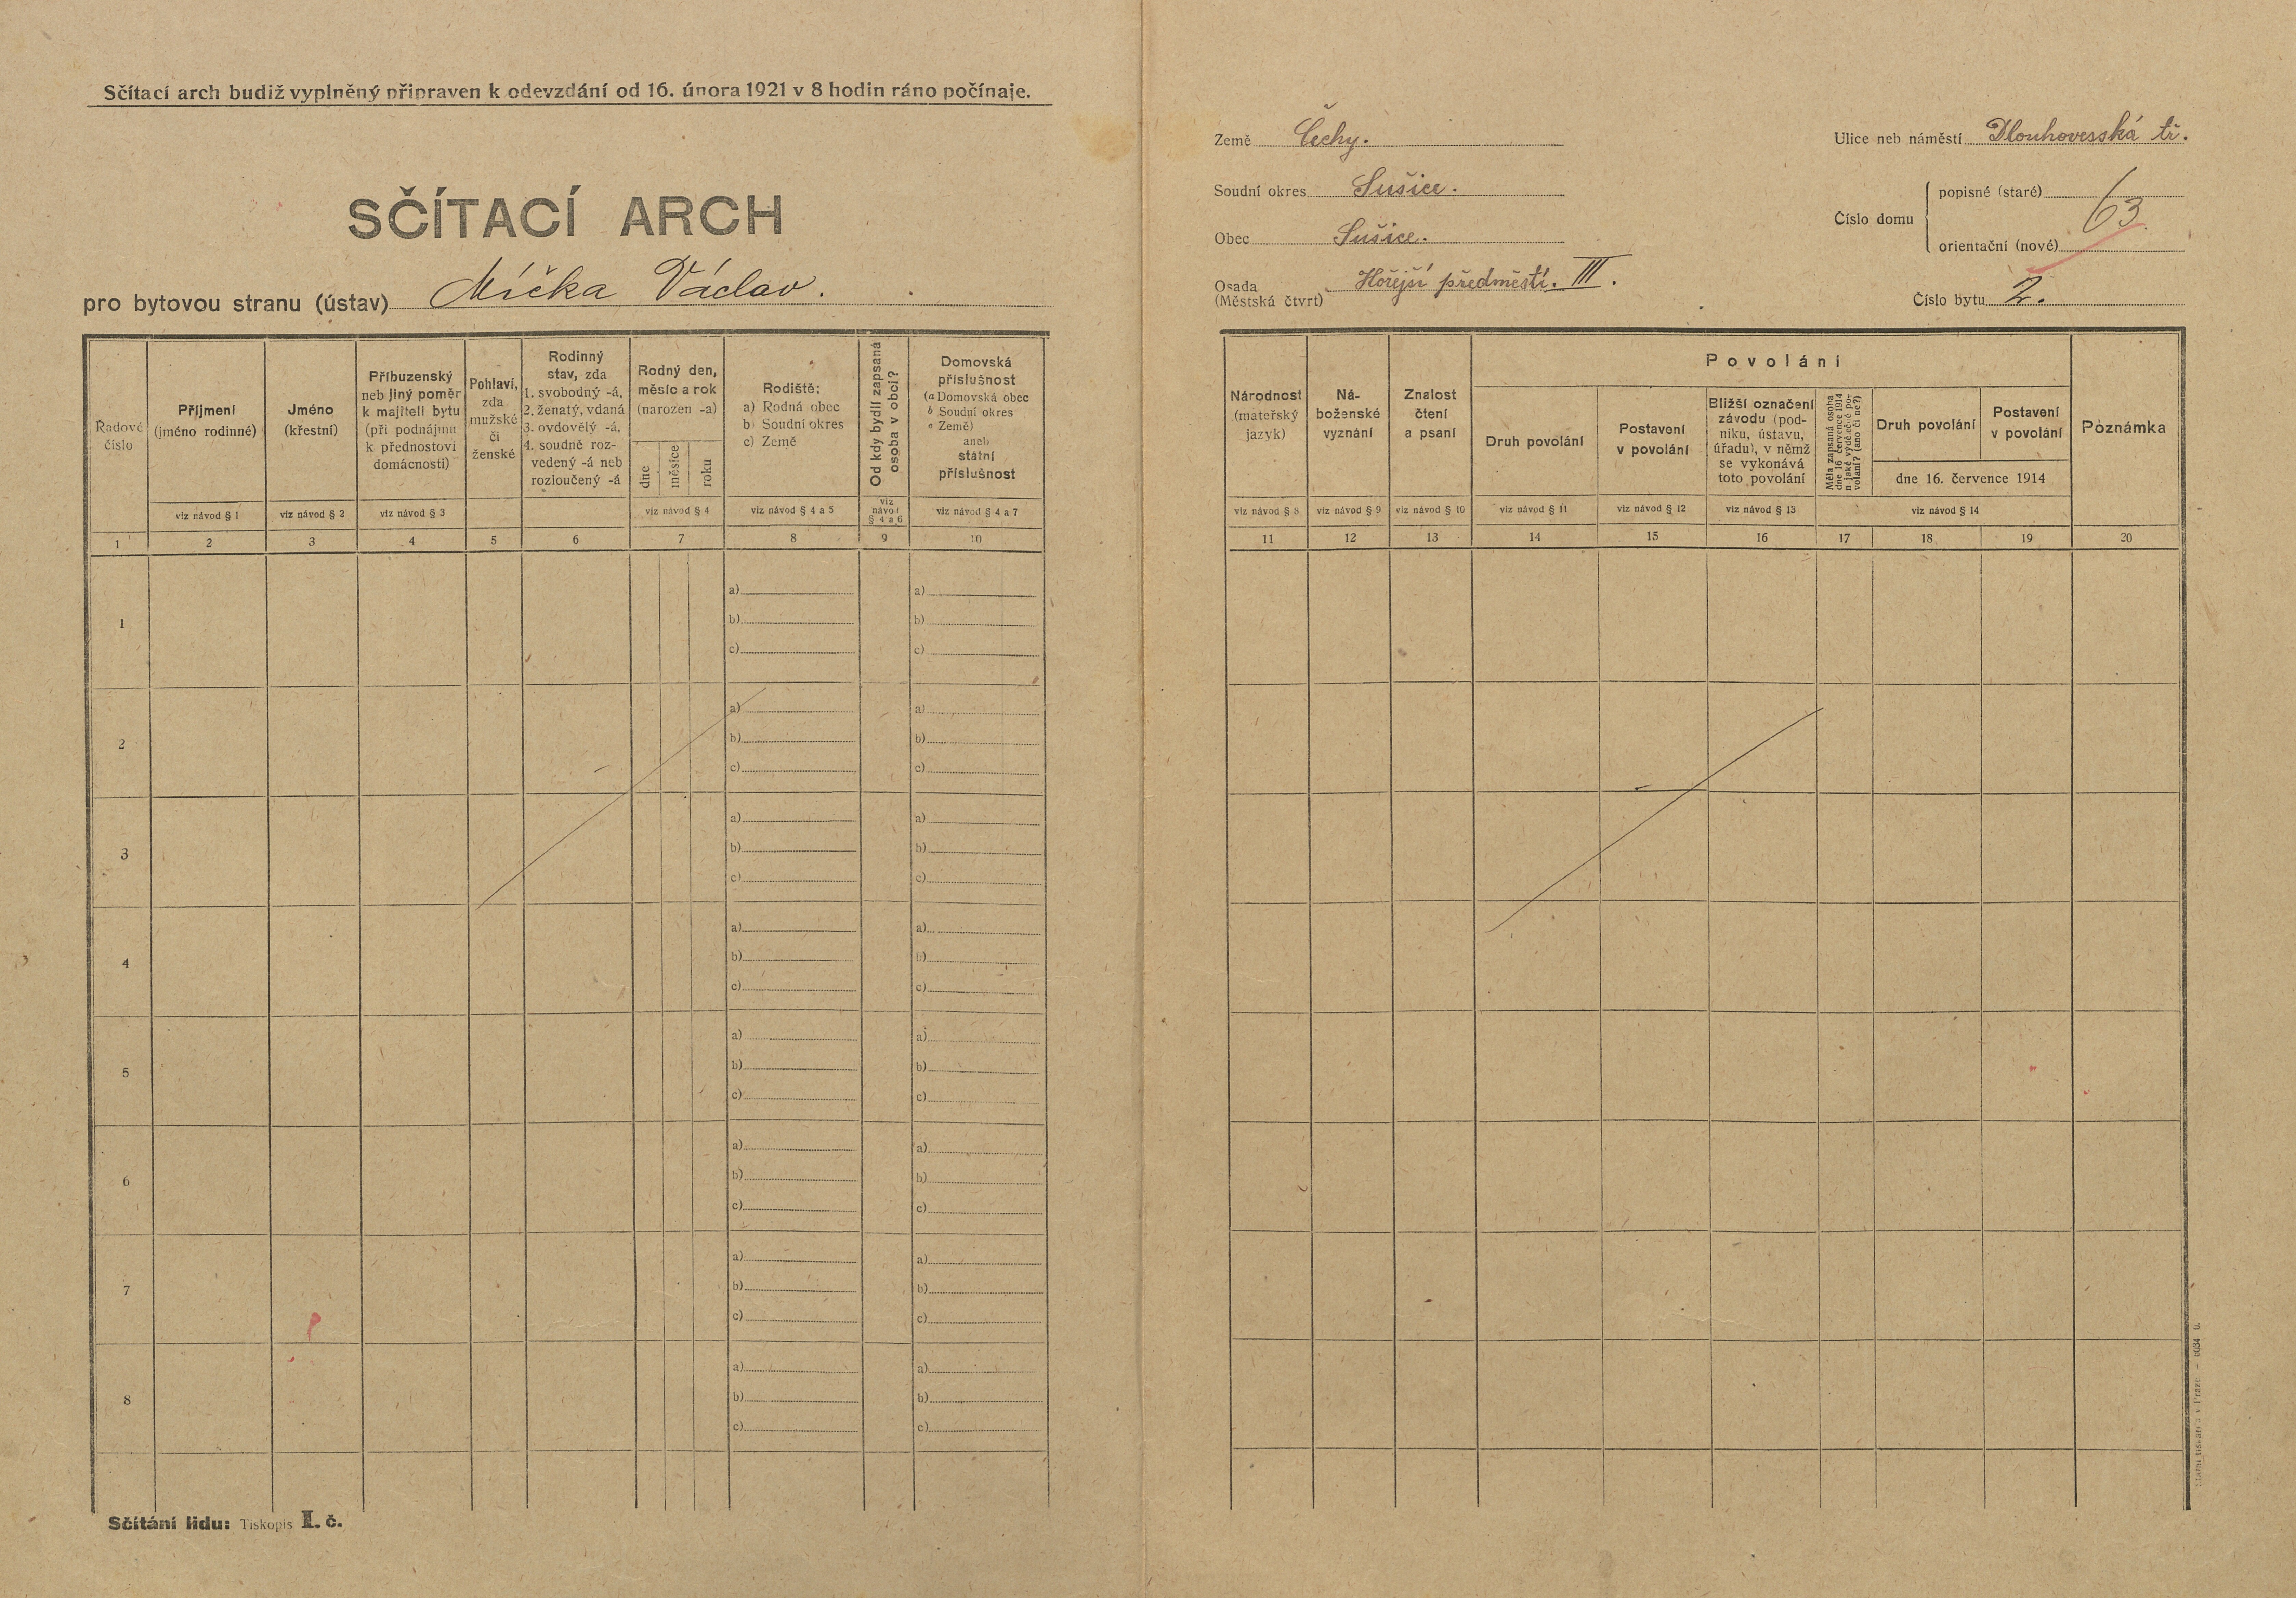 Sčítací arch budiž vyplněný připraven k odevzdání od 16. února 1921 v 8 hodin ráno počínaje.
SČÍTACÍ ARCH
pro bytovou stranu (ústav) Míčka Václav.
Řadové číslo
Příjmení (jméno rodinné)
viz návod § 1
Jméno (křestní)
viz návod § 2
Příbuzenský
neb jiný poměr
k majiteli bytu
(při podnájmu
k přednostovi
domácnosti)
viz návod § 3
Pohlaví,
zda
mužské
či
ženské
Rodinný
stav, zda
1. svobodný -á,
2. ženatý, vdaná
3. ovdovělý -á,
4. soudně roz-
vedený -á neb
rozloučený -á
Rodný den,
měsíc a rok
(narozen -a)
dne měsíce roku
viz návod § 4
Rodiště:
a) Rodná obec
b) Soudní okres
c) Země
viz návod § 4 a 5
Od kdy bydlí zapsaná
osoba v obci?
viz
návod
§ 4 a 6
Domovská
příslušnost
(a Domovská obec
b Soudní okres
c Země)
aneb
státní
příslušnost
viz návod § 4 a 7
1 2 3 4 5 6 7 8 9 10
1
a) a)
b) b)
c) c)
2
a) a)
b) b)
c) c)
3
a) a)
b) b)
c) c)
4
a) a)
b) b)
c) c)
5
a) a)
b) b)
c) c)
6
a) a)
b) b)
c) c)
7
a) a)
b) b)
c) c)
8
a) a)
b) b)
c) c)
Sčítání lidu: Tiskopis I. č.
Země Čechy.
Soudní okres Sušice.
Obec Sušice.
Osada Hořejší předměstí. III.
(Městská čtvrt)
Ulice neb náměstí Dlouhovesská tř.
Číslo domu
popisné (staré) 63
orientační (nové)
Číslo bytu 2.
Národnost
(mateřský
jazyk)
viz návod § 8
Ná-
boženské
vyznání
viz návod § 9
Znalost
čtení
a psaní
viz návod § 10
Povolání
Druh povolání
viz návod § 11
Postavení
v povolání
viz návod § 12
Bližší označení
závodu (pod-
niku, ústavu,
úřadu), v němž
se vykonává
toto povolání
viz návod § 13
Měla zapsaná osoba
dne 16 července 1914
nějaké výdělečné po-
volání? (ano či ne?)
Druh povolání
Postavení
v povolání
dne 16. července 1914
viz návod § 14
Poznámka
11 12 13 14 15 16 17 18 19 20